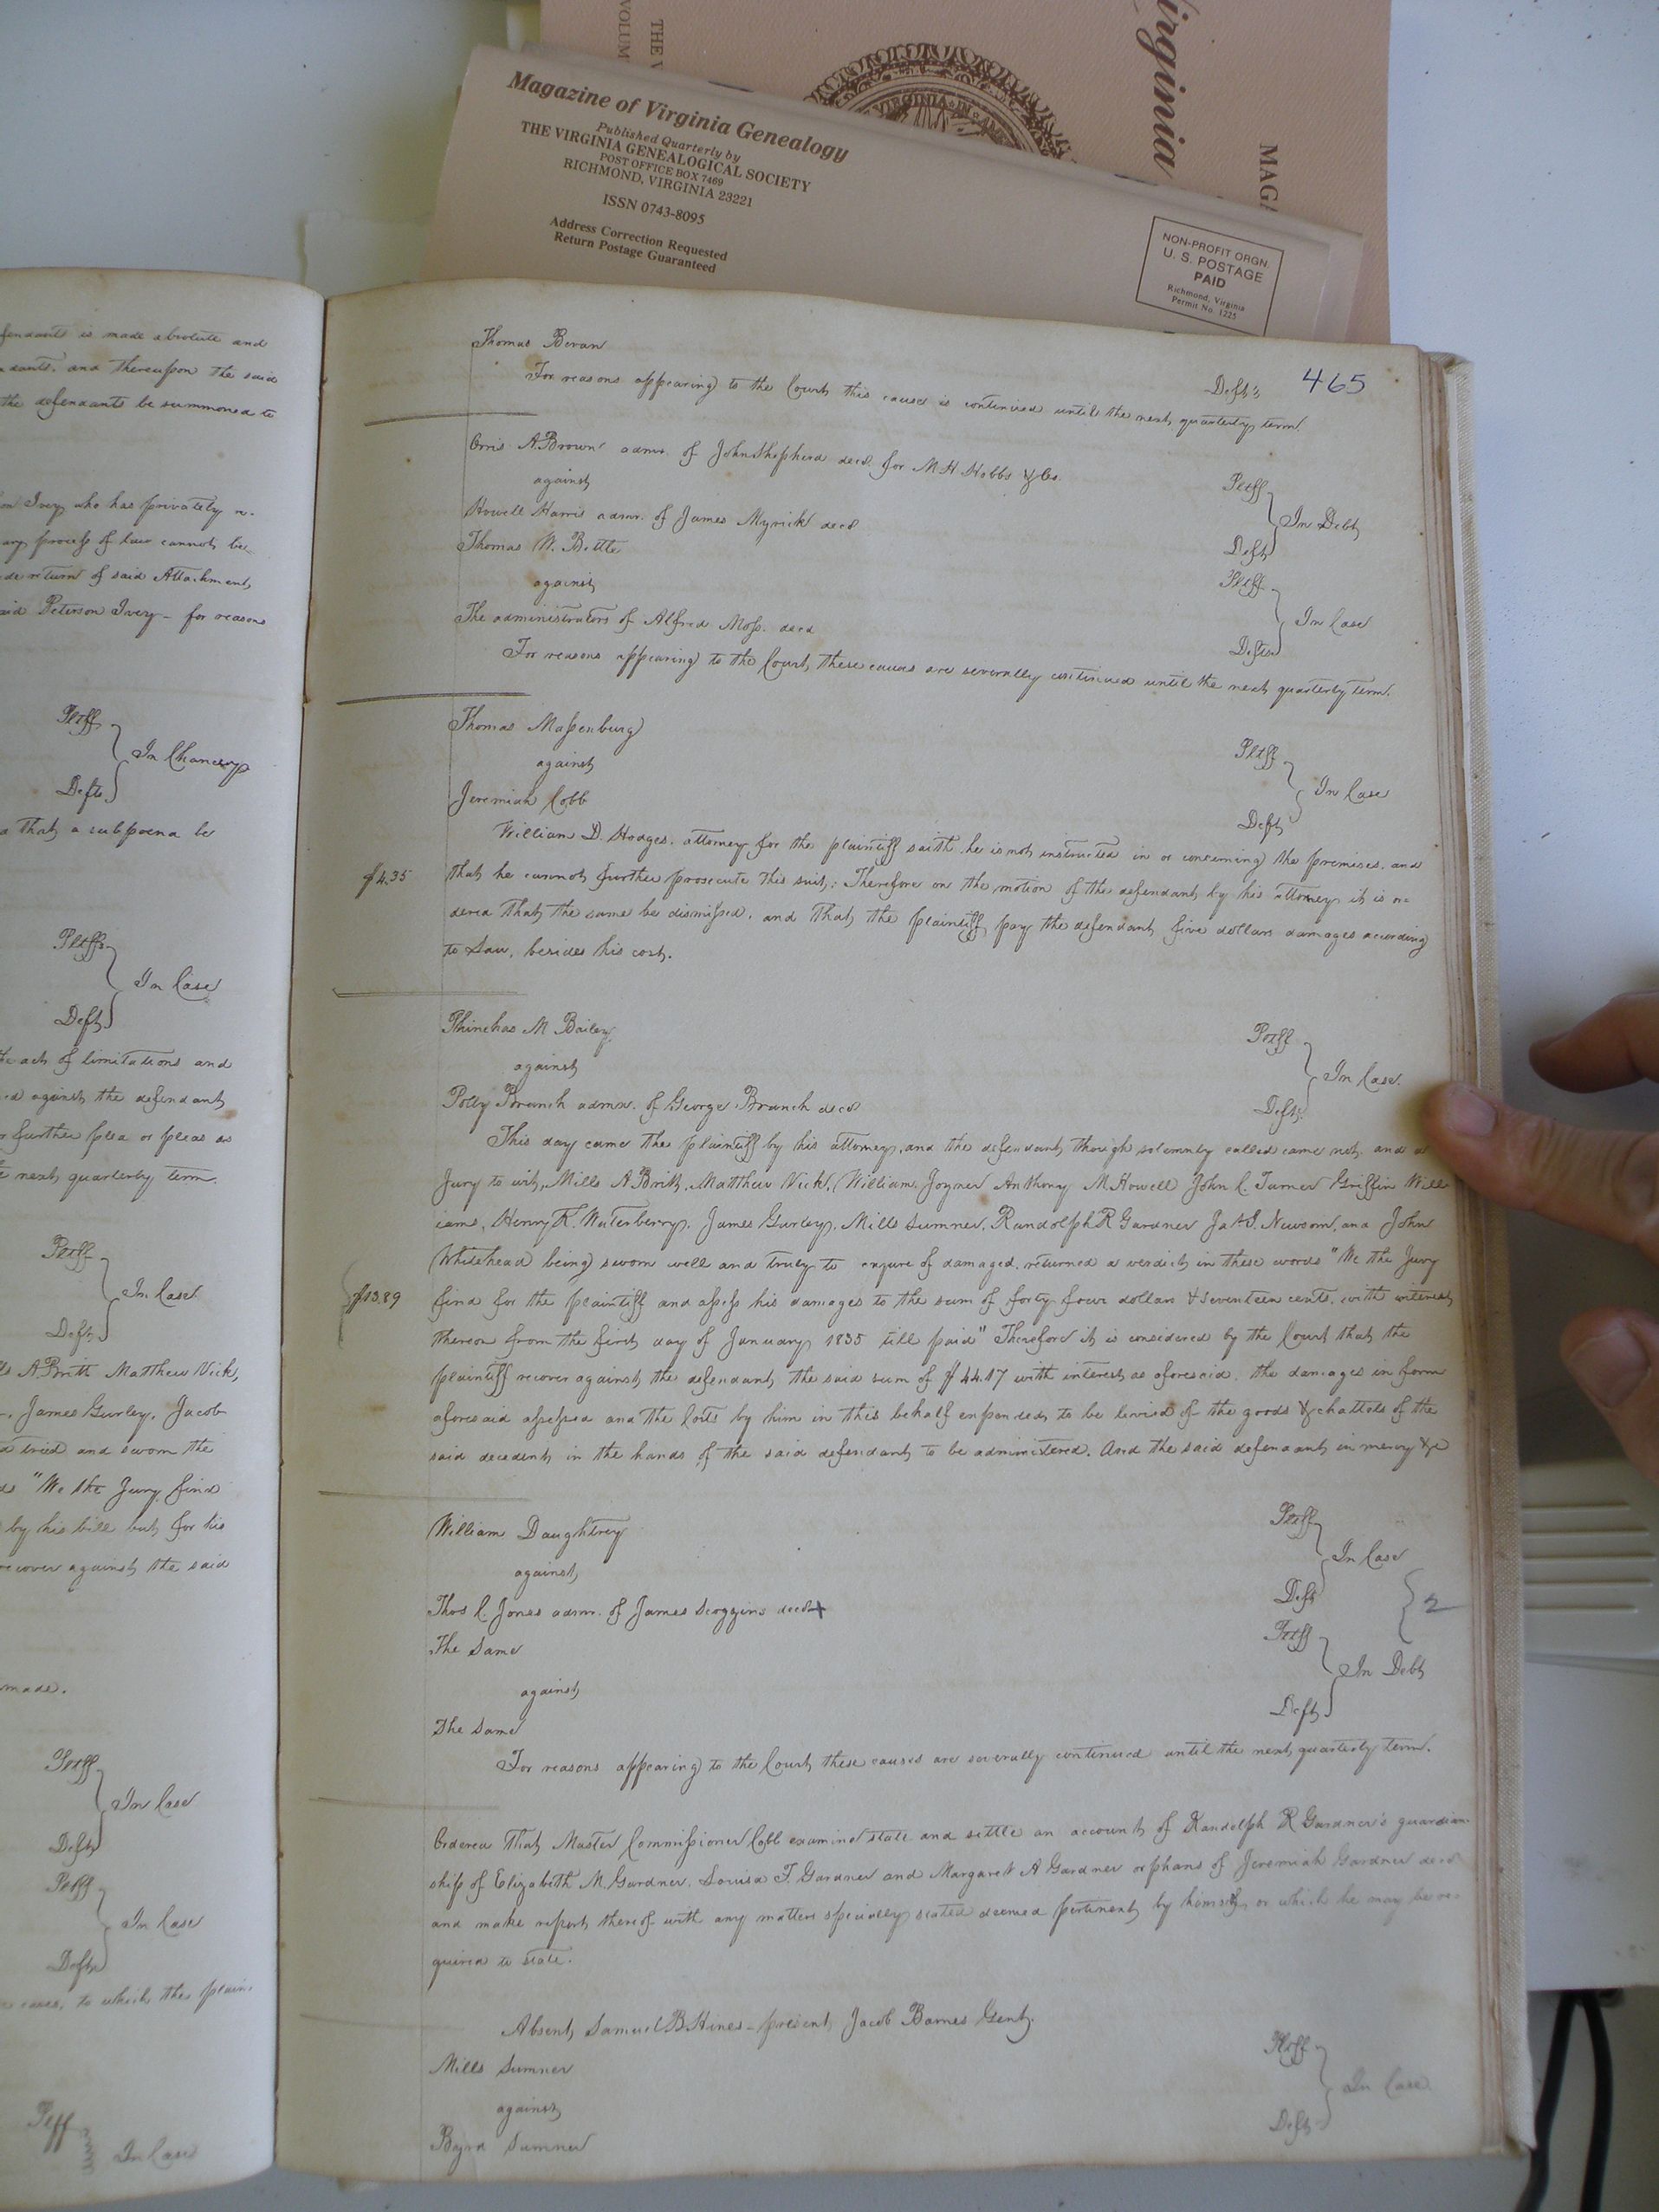 THE V
VOLUM
Virginia
MAGA
VIRGINIA IN
Magazine of Virginia Genealogy
Published Quarterly by
THE VIRGINIA GENEALOGICAL SOCIETY
POST OFFICE BOX 7469
RICHMOND, VIRGINIA 23221
ISSN 0743-8095
Address Correction Requested
Return Postage Guaranteed
NON-PROFIT ORGN.
U. S. POSTAGE
PAID
Richmond, Virginia
Permit No. 1225
fendants is made absolute and
dants. and thereupon the said
the defendants be summoned to
Ivey who has privately re-
ary process of law cannot be
de return of said Attachment
aid Peterson Ivey - for reasons
Pltff
In Chancery
Defts
a That a subpoena be
Pltffs
In Case
Deft
act of limitations and
d against the defendant
further plea or pleas as
next quarterly term.
Pltff
In Case
Deft
A Britt Matthew Vick,
James Gurley, Jacob
tried and sworn the
"We the Jury find
by his bill but for his
recover against the said
made.
Pltff
In Case
Deft
Pltff
In Case
Deft
cases, to which the plain
Pltff
In Case
465
Thomas Bevan
Defts
For reasons appearing to the Court this cause is continued until the next quarterly term.
Orris A. Browne admr. of John Shepherd decd. for M H Hobbs & Co.
Pltff
against
In Debt
Howell Harris admr. of James Myrick decd
Deft
Thomas W. Bittle
Pltff
against
In Case
The administrators of Alfred Moss. decd
Defts
For reasons appearing to the Court, these causes are severally continued until the next quarterly term.
Thomas Massenburg
Pltff
against
In Case
Jeremiah Cobb
Deft
William D. Hodges, attorney for the plaintiff saith he is not instructed in or concerning the premises, and
$4.35
that he cannot further prosecute this suit: Therefore on the motion of the defendant by his attorney it is or-
dered that the same be dismissed, and that the plaintiff pay the defendant five dollars damages according
to Law, besides his cost.
Phinehas M Bailey
Pltff
against
In Case.
Polly Branch admx. of George Branch decd
Deft
This day came the plaintiff by his attorney, and the defendant though solemnly called came not. and a
Jury to wit, Mills A Britt, Matthew Vick, William Joyner Anthony M Howell John C. Turner Griffin Will
iams, Henry K. Waterberry, James Gurley, Mills Sumner, Randolph R Gardner Jas S. Newsom, and John
Whitehead being sworn well and truly to enquire of damages, returned a verdict in these words "We the Jury
$13.89
find for the plaintiff and assess his damages to the sum of forty four dollars & seventeen cents, with interest
thereon from the first day of January 1835 till paid" Therefore it is considered by the Court that the
plaintiff recover against the defendant the said sum of $44.17 with interest as aforesaid, the damages in form
aforesaid assessed and the Costs by him in this behalf expended, to be levied of the goods & chattels of the
said decedent in the hands of the said defendant to be administered. And the said defendant in mercy &c
William Daughtrey
Pltff
against
In Case
Thos C. Jones admr. of James Scoggins decd +
Deft
2
The Same
Pltff
against
In Debt
The Same
Deft
For reasons appearing to the Court these causes are severally continued until the next quarterly term.
Ordered that Master Commissioner Cobb examine state and settle an account of Randolph R Gardner's guardian
ship of Elizabeth M. Gardner, Louisa T. Gardner and Margaret A Gardner orphans of Jeremiah Gardner decd
and make report thereof with any matters specially stated deemed pertinent by himself, or which he may be re-
quired to state.
Absent Samuel B Hines - present Jacob Barnes Gent.
Mills Sumner
Pltff
against
In Case.
Byrd Sumner
Deft